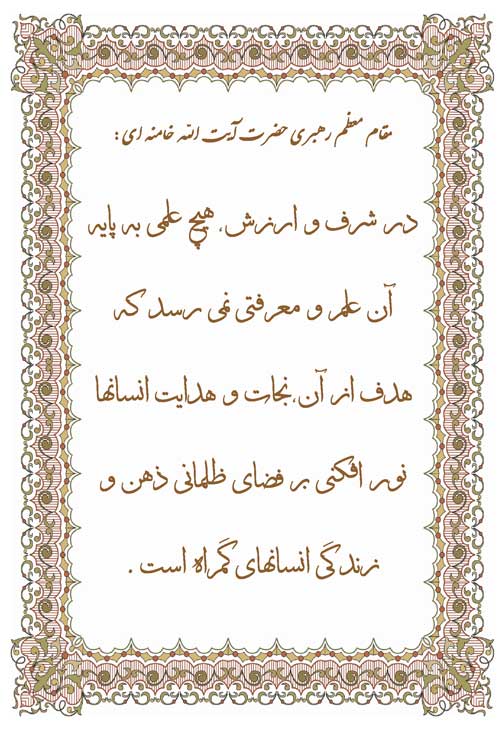 مقام معظم رهبری حضرت آیت الله خامنه ای:
در شرف و ارزش، هیچ علمی به پایه
آن علم و معرفتی نمی رسد که
هدف از آن، نجات و هدایت انسانها
نور افکنی بر فضای ظلمانی ذهن و
زندگی انسانهای گمراه است .